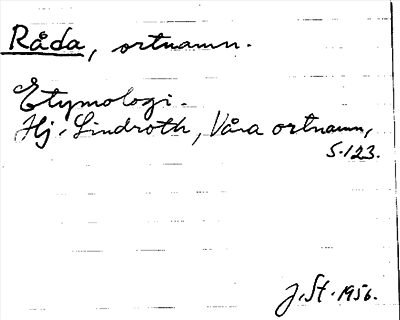 Råda, ortnamn.
Etymologi.
Hj. Lindroth, Våra ortnamn,
S. 123.
J. St. 1956.